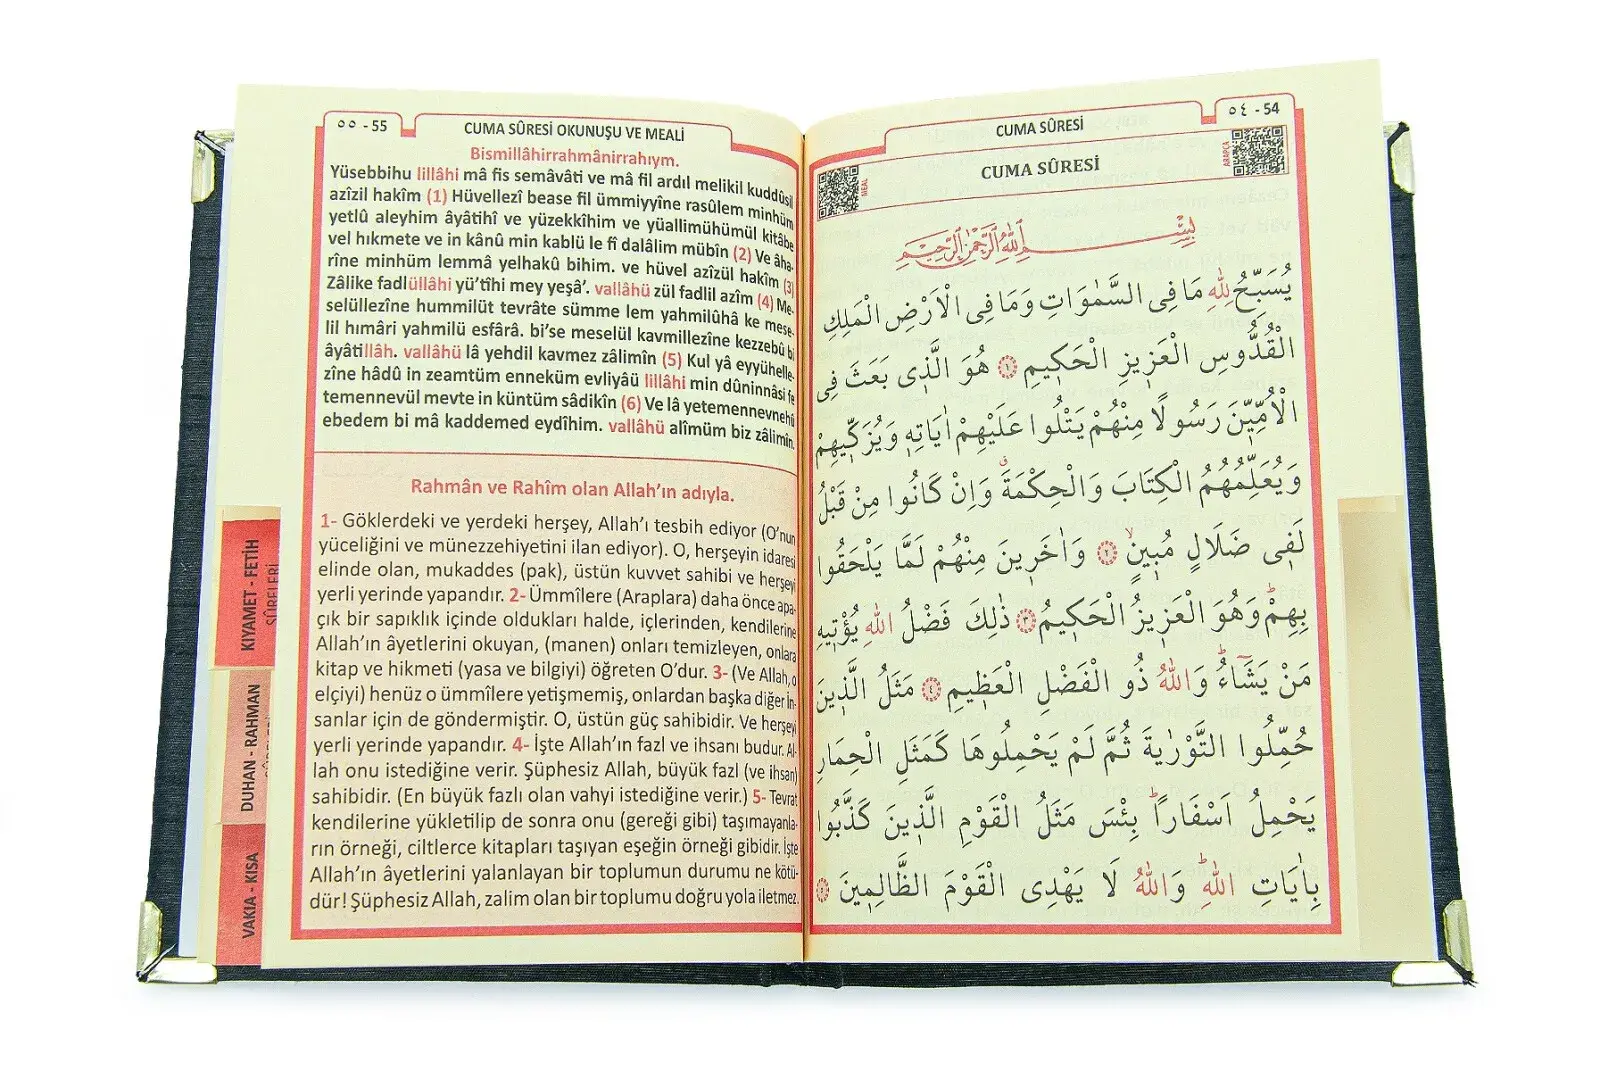 ٥٥ - 55
CUMA SÛRESİ OKUNUŞU VE MEALİ
Bismillâhirrahmânirrahıym.
Yüsebbihu lillâhi mâ fis semâvâti ve mâ fil ardıl melikil kuddûsil
azîzil hakîm (1) Hüvellezî bease fil ümmiyyîne rasûlem minhüm
yetlû aleyhim âyâtihî ve yüzekkîhim ve yüallimühümül kitâbe
vel hıkmete ve in kânû min kablü le fî dalâlim mübîn (2) Ve âha-
rîne minhüm lemmâ yelhakû bihim. ve hüvel azîzül hakîm (3)
Zâlike fadlüllâhi yü’tîhi mey yeşâ’. vallâhü zül fadlil azîm (4) Me-
selüllezîne hummilüt tevrâte sümme lem yahmilûhâ ke mese-
lil hımâri yahmilü esfârâ. bi’se meselül kavmillezîne kezzebû bi
âyâtillâh. vallâhü lâ yehdil kavmez zâlimîn (5) Kul yâ eyyühelle-
zîne hâdû in zeamtüm enneküm evliyâü lillâhi min dûninnâsi fe
temennevül mevte in küntüm sâdikîn (6) Ve lâ yetemennevnehû
ebedem bi mâ kaddemed eydîhim. vallâhü alîmüm biz zâlimîn.
Rahmân ve Rahîm olan Allah’ın adıyla.
1- Göklerdeki ve yerdeki herşey, Allah’ı tesbih ediyor (O’nun
yüceliğini ve münezzehiyetini ilan ediyor). O, herşeyin idaresi
elinde olan, mukaddes (pak), üstün kuvvet sahibi ve herşeyi
yerli yerinde yapandır. 2- Ümmîlere (Araplara) daha önce apa-
çık bir sapıklık içinde oldukları halde, içlerinden, kendilerine
Allah’ın âyetlerini okuyan, (manen) onları temizleyen, onlara
kitap ve hikmeti (yasa ve bilgiyi) öğreten O’dur. 3- (Ve Allah, o
elçiyi) henüz o ümmîlere yetişmemiş, onlardan başka diğer in-
sanlar için de göndermiştir. O, üstün güç sahibidir. Ve herşeyi
yerli yerinde yapandır. 4- İşte Allah’ın fazl ve ihsanı budur. Al-
lah onu istediğine verir. Şüphesiz Allah, büyük fazl (ve ihsan)
sahibidir. (En büyük fazlı olan vahyi istediğine verir.) 5- Tevrat
kendilerine yükletilip de sonra onu (gereği gibi) taşımayanla-
rın örneği, ciltlerce kitapları taşıyan eşeğin örneği gibidir. İşte
Allah’ın âyetlerini yalanlayan bir toplumun durumu ne kötü-
dür! Şüphesiz Allah, zalim olan bir toplumu doğru yola iletmez.
KIYAMET - FETİH
SÛRELERİ
DUHAN - RAHMAN
VAKIA - KISA
CUMA SÛRESİ
٥٤ - 54
MEAL
CUMA SÛRESİ
ARAPÇA
بِسْمِ اللّٰهِ الرَّحْمٰنِ الرَّحِيمِ
يُسَبِّحُ لِلّٰهِ مَا فِى السَّمٰوَاتِ وَمَا فِى الْاَرْضِ الْمَلِكِ
الْقُدُّوسِ الْعَزٖيزِ الْحَكٖيمِ ﴿١﴾ هُوَ الَّذٖى بَعَثَ فِى
الْاُمِّيّٖنَ رَسُولًا مِنْهُمْ يَتْلُوا عَلَيْهِمْ اٰيَاتِهٖ وَيُزَكّٖيهِمْ
وَيُعَلِّمُهُمُ الْكِتَابَ وَالْحِكْمَةَۗ وَاِنْ كَانُوا مِنْ قَبْلُ
لَفٖى ضَلَالٍ مُبٖينٍۙ ﴿٢﴾ وَاٰخَرٖينَ مِنْهُمْ لَمَّا يَلْحَقُوا
بِهِمْؕ وَهُوَ الْعَزٖيزُ الْحَكٖيمُ ﴿٣﴾ ذٰلِكَ فَضْلُ اللّٰهِ يُؤْتٖيهِ
مَنْ يَشَٓاءُؕ وَاللّٰهُ ذُو الْفَضْلِ الْعَظٖيمِ ﴿٤﴾ مَثَلُ الَّذٖينَ
حُمِّلُوا التَّوْرٰيةَ ثُمَّ لَمْ يَحْمِلُوهَا كَمَثَلِ الْحِمَارِ
يَحْمِلُ اَسْفَاراًؕ بِئْسَ مَثَلُ الْقَوْمِ الَّذٖينَ كَذَّبُوا
بِاٰيَاتِ اللّٰهِؕ وَاللّٰهُ لَا يَهْدِى الْقَوْمَ الظَّالِمٖينَ ﴿٥﴾